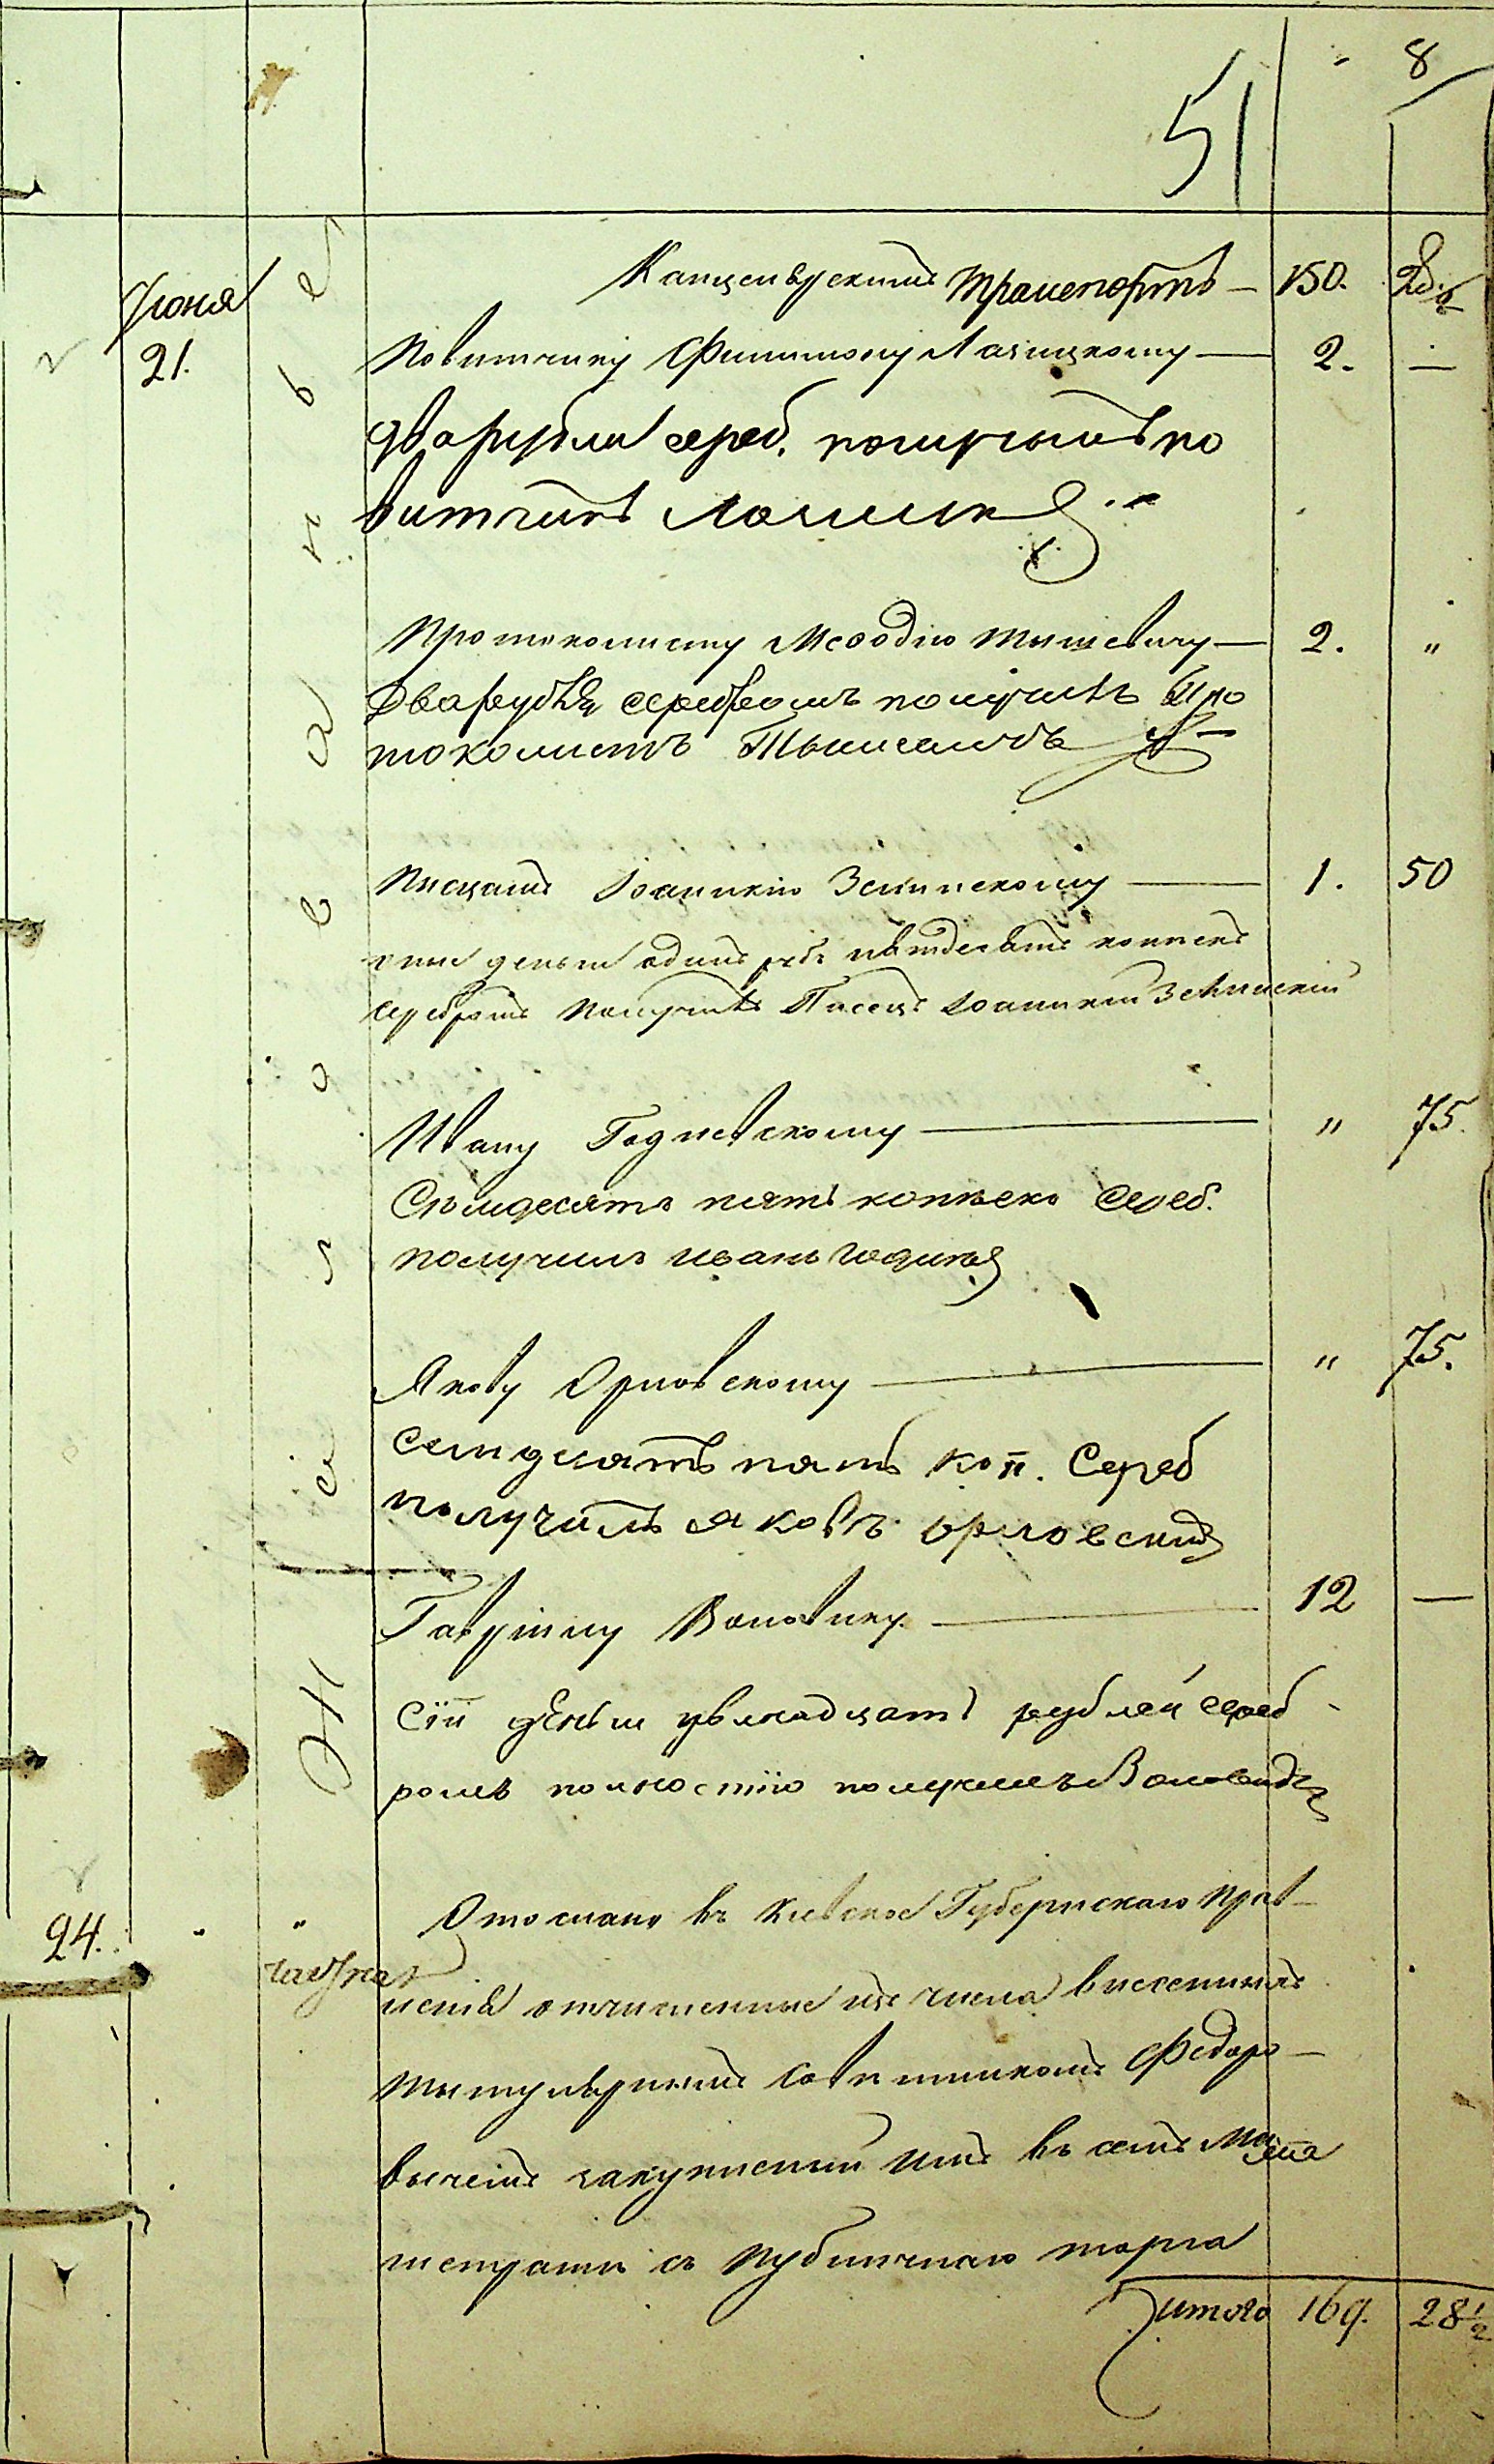 8
51
Транспортъ — 150. 28 ½
Июня
21.
Повытчику Филимону Лазицкому — 2. —
два рубли сереб. получилъ по
вытчикъ
Протоколисту Меѳодію Тышевичу — 2. "
Два рубля серебромъ получилъ Про
токолистъ
Писцамъ Іоаникію Зелинскому — 1. 50
деньги одинъ руб. пятдесятъ копѣекъ
серебромъ получилъ Писецъ Іоаникій Зелинскій
Ивану Годлевскому — " 75.
Семдесятъ пять копѣекъ сереб.
получилъ иванъ
Якову Орловскому — " 75.
Семдесятъ пять коп. Сереб
получилъ яковъ орловский
Гаврілу Воловику — 12 —
Сіи деньги двѣнадцать рублей сереб
ромъ полностію получилъ
24. " "
Отослано въ Кіевское Губернскаго Прав—
ленія отчисленные изъ числа внесенныхъ
титулярнымъ Совѣтникомъ Федоро—
вичемъ закупленный имъ въ семъ Маги
стратѣ съ публичнаго торга
итого 169. 28 ½